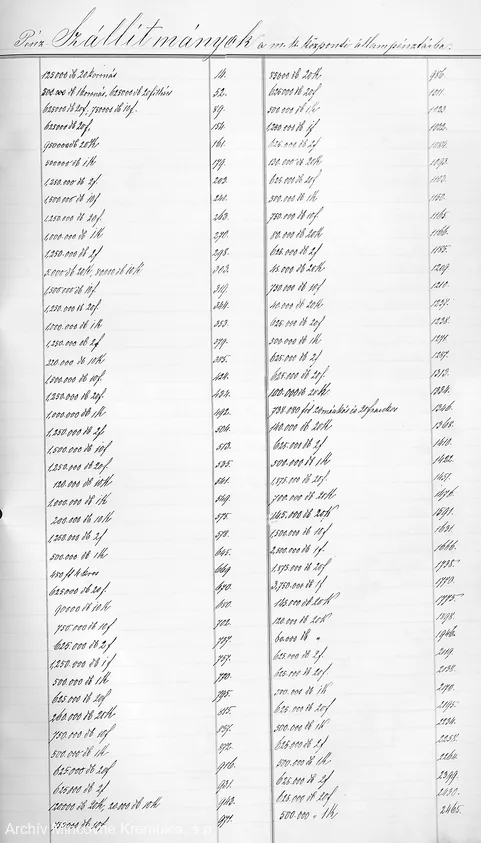 Pénz Szállítmányok a m. kir. központi állampénztárba.
125000 db 20 koronás 14.
500.000 db 1 koronás, 625000 db 20 filléres 52.
625000 db 20f, 750000 db 10f. 89.
625000 db 20f. 154.
950000 db 20K 161.
500000 db 1K 179.
1,250.000 db 2f 203.
1,500.000 db 10f 240.
1,250.000 db 20f. 263.
1,000.000 db 1K 270.
1,250.000 db 2f 298.
303.
1,500.000 db 10f 319.
1,250.000 db 20f 344.
1,000.000 db 1K 353.
1,250.000 db 2f 379.
220.000 db 10K 385.
1,500.000 db 10f. 428.
1,250.000 db 20f. 434.
1,000.000 db 1K 492.
1,250.000 db 2f 504.
1,500.000 db 10f 513.
1,250.000 db 20f. 535.
120.000 db 10K 541.
1,000.000 db 1K 549.
200.000 db 10K 575.
1,250.000 db 2f 578.
500.000 db 1K 645.
669.
625.000 db 20f 670.
90000 db 10K 680.
750.000 db 10f 702.
625.000 db 2f 737.
1,250.000 db 1f 757.
500.000 db 1K 770.
625.000 db 20f 795.
260.000 db 20K 815.
750.000 db 10f 851.
500.000 db 1K 872.
625.000 db 20f 916.
625.000 db 2f 931.
120000 db 20K, 20.000 db 10K 943.
750.000 db 10f 971.
55000 db 20K 986.
625.000 db 20f 1011.
500.000 db 1K 1023.
1,250.000 db 1f 1022.
625.000 db 2f 1084.
130.000 db 20K 1093.
625.000 db 20f 1103.
500.000 db 1K 1150.
750.000 db 10f 1165.
80.000 db 20K 1166.
625.000 db 2f 1185.
45.000 db 20K 1209.
750.000 db 10f 1210.
40.000 db 20K 1237.
625.000 db 20f 1238.
500.000 db 1K 1271.
625.000 db 2f 1257.
625.000 db 20f. 1313.
100.000 db 20K 1334.
20 márkás és 20 frankos 1346.
140.000 db 20K 1368.
625.000 db 2f 1410.
500.000 db 1K 1422.
1,875.000 db 20f. 1451.
700.000 db 20K 1476.
145.000 db 20K 1591.
1,500.000 db 10f 1631.
2,500.000 db 1f. 1666.
1,875.000 db 20f 1738.
3,750.000 db 1f 1770.
165.000 db 20K 1775.
120.000 db 20K 1898.
60.000 db " 1946.
625.000 db 2f. 2019.
625.000 db 20f 2038.
500.000 db 1K 2190.
625.000 db 20f 2195.
500.000 db 1K 2234.
625.000 db 2f 2258.
500.000 db 1K 2260.
625.000 db 2f 2399.
625.000 db 20f 2430.
500.000 " 1K 2465.
Archív Mincovne Kremnica, š.p.